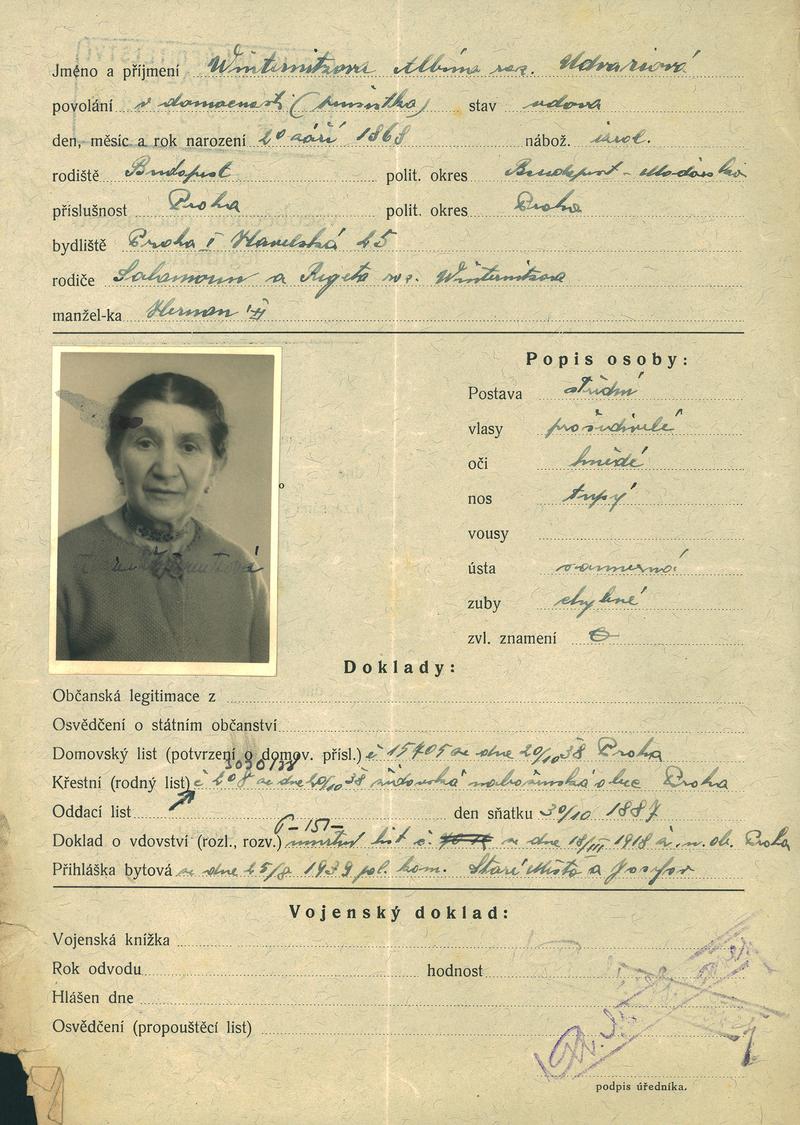 Jméno a příjmení Winternitzová Albína roz. Udvariová
povolání v domácnosti ( ) stav vdova
den, měsíc a rok narození 20 září 1868 nábož. israel.
rodiště Budapest polit. okres Budapest - Maďarsko
příslušnost Praha polit. okres Praha
bydliště Praha I Havelská 25
rodiče Salamoun a Regina roz. Winternitzová
manžel-ka Herman
Popis osoby:
Postava střední
vlasy prošedivělé
oči hnědé
nos tupý
vousy
ústa souměrná
zuby chybné
zvl. znamení
Doklady:
Občanská legitimace z
Osvědčení o státním občanství
Domovský list (potvrzení o domov. přísl.) č 15405 ze dne 20/10 38 Praha
Křestní (rodný list) č 208 ze dne 20/10 38 židovská náboženská obec Praha
Oddací list den sňatku 30/10 1887
V-151-
Doklad o vdovství (rozl., rozv.) úmrtní list č. ze dne 18/III 1918 ž. n. ob. Praha
Přihláška bytová ze dne 25/8 1939 pol. kom. Staré Město a Josefov
Vojenský doklad:
Vojenská knížka
Rok odvodu hodnost
Hlášen dne
Osvědčení (propouštěcí list)
podpis úředníka.